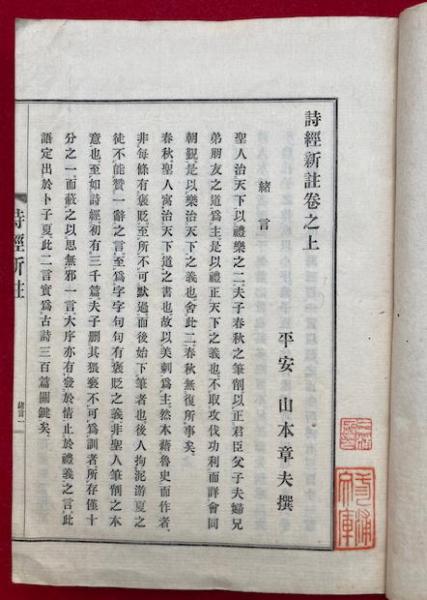 詩經新註卷之上
平安 山本章夫撰
緒言
聖人治天下、以禮樂之二、夫子春秋之筆削、以正君臣父子夫婦兄
弟朋友之道爲主、是以禮正天下之義也、不取攻伐功利、而詳會同
朝覲、是以樂治天下之義也、舍此二、春秋無復所事矣、
春秋、聖人寓治天下道之書也、故以美刺爲主、然本藉魯史而作者、
非每條有褒貶、至所不可默過、而後始下筆者也、後人拘泥游夏之
徒不能贊一辭之言、至爲字字句句有褒貶之義、非聖人筆削之本
意也、至如詩經、初有三千篇、夫子刪其猥褻不可爲訓者、所存僅十
分之一、而蔽之以思無邪一言、大序亦有發於情止於禮義之言、此
語定出於卜子夏、此二言實爲古詩三百篇關鍵矣、
詩經新註
緒言 一